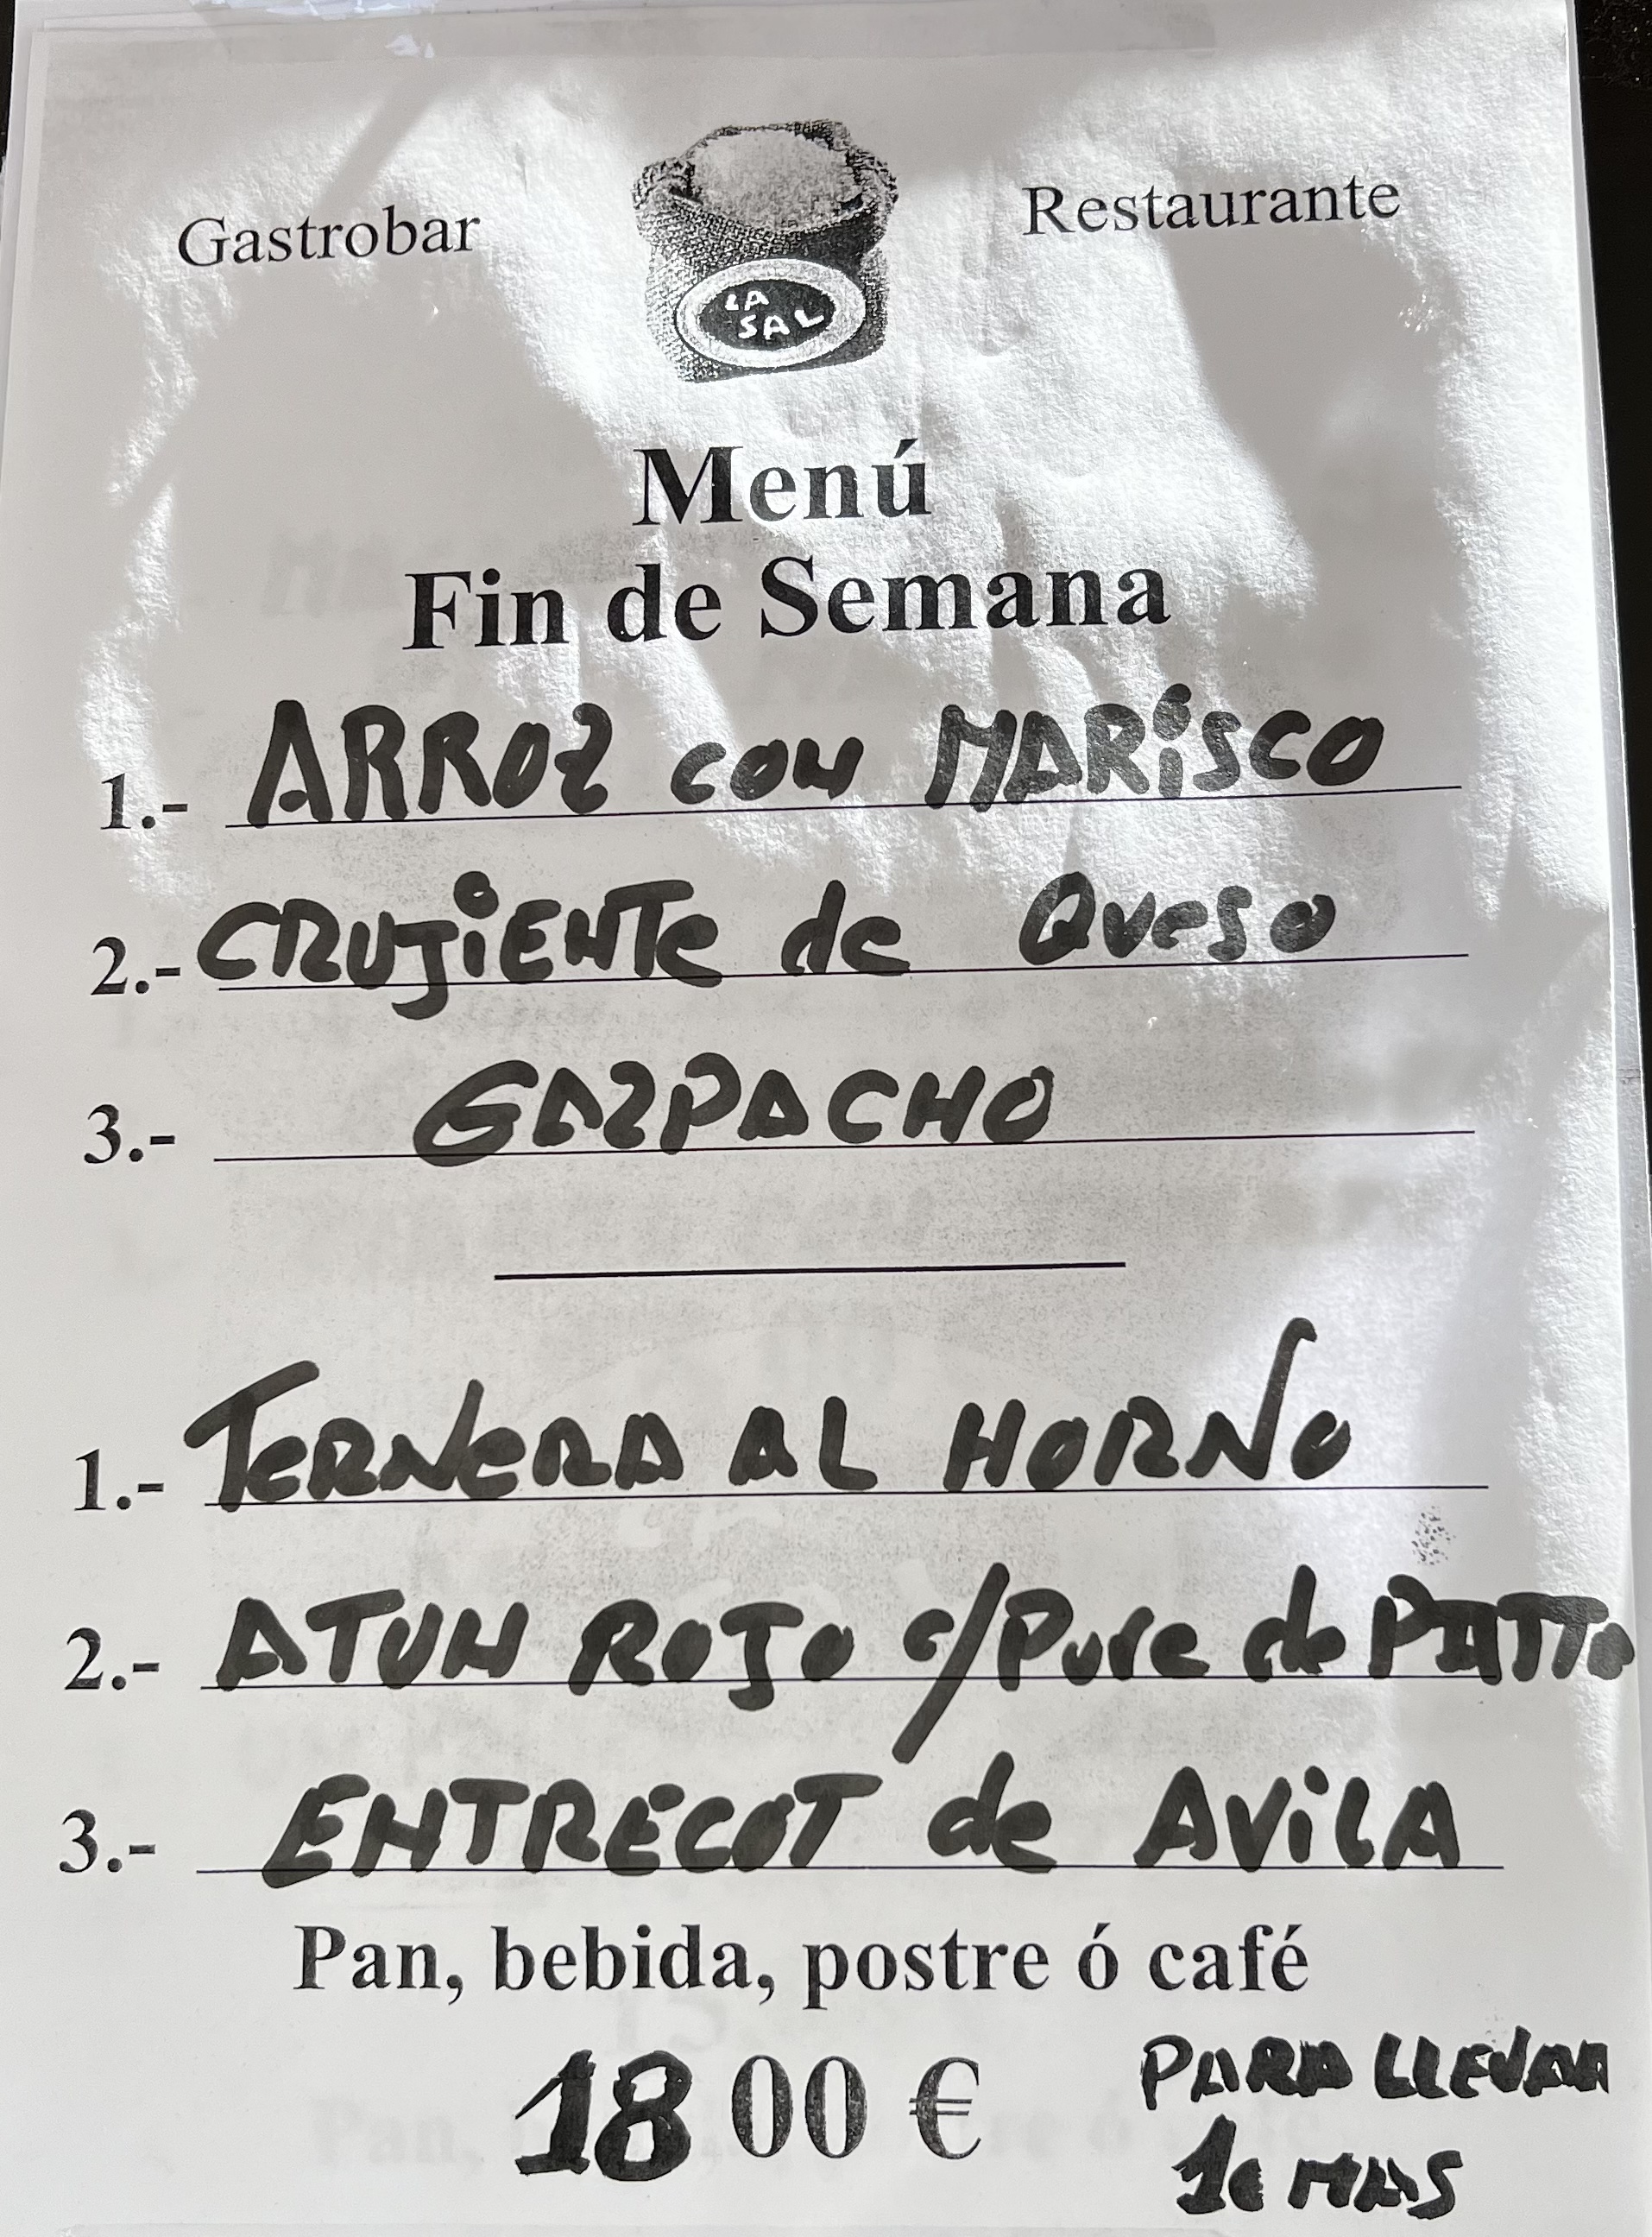 Gastrobar
LA
SAL
Restaurante
Menú
Fin de Semana
1.- ARROZ con MARiSCO
2.- CRUJiENTe de Queso
3.- GAZPACHO
1.- TeRNeRA AL HORNo
2.- ATUN ROJo c/Pure de PATTa
3.- ENTRECOT de AViLA
Pan, bebida, postre ó café
18 00 €
PARA LLEVAR
1€ MAS